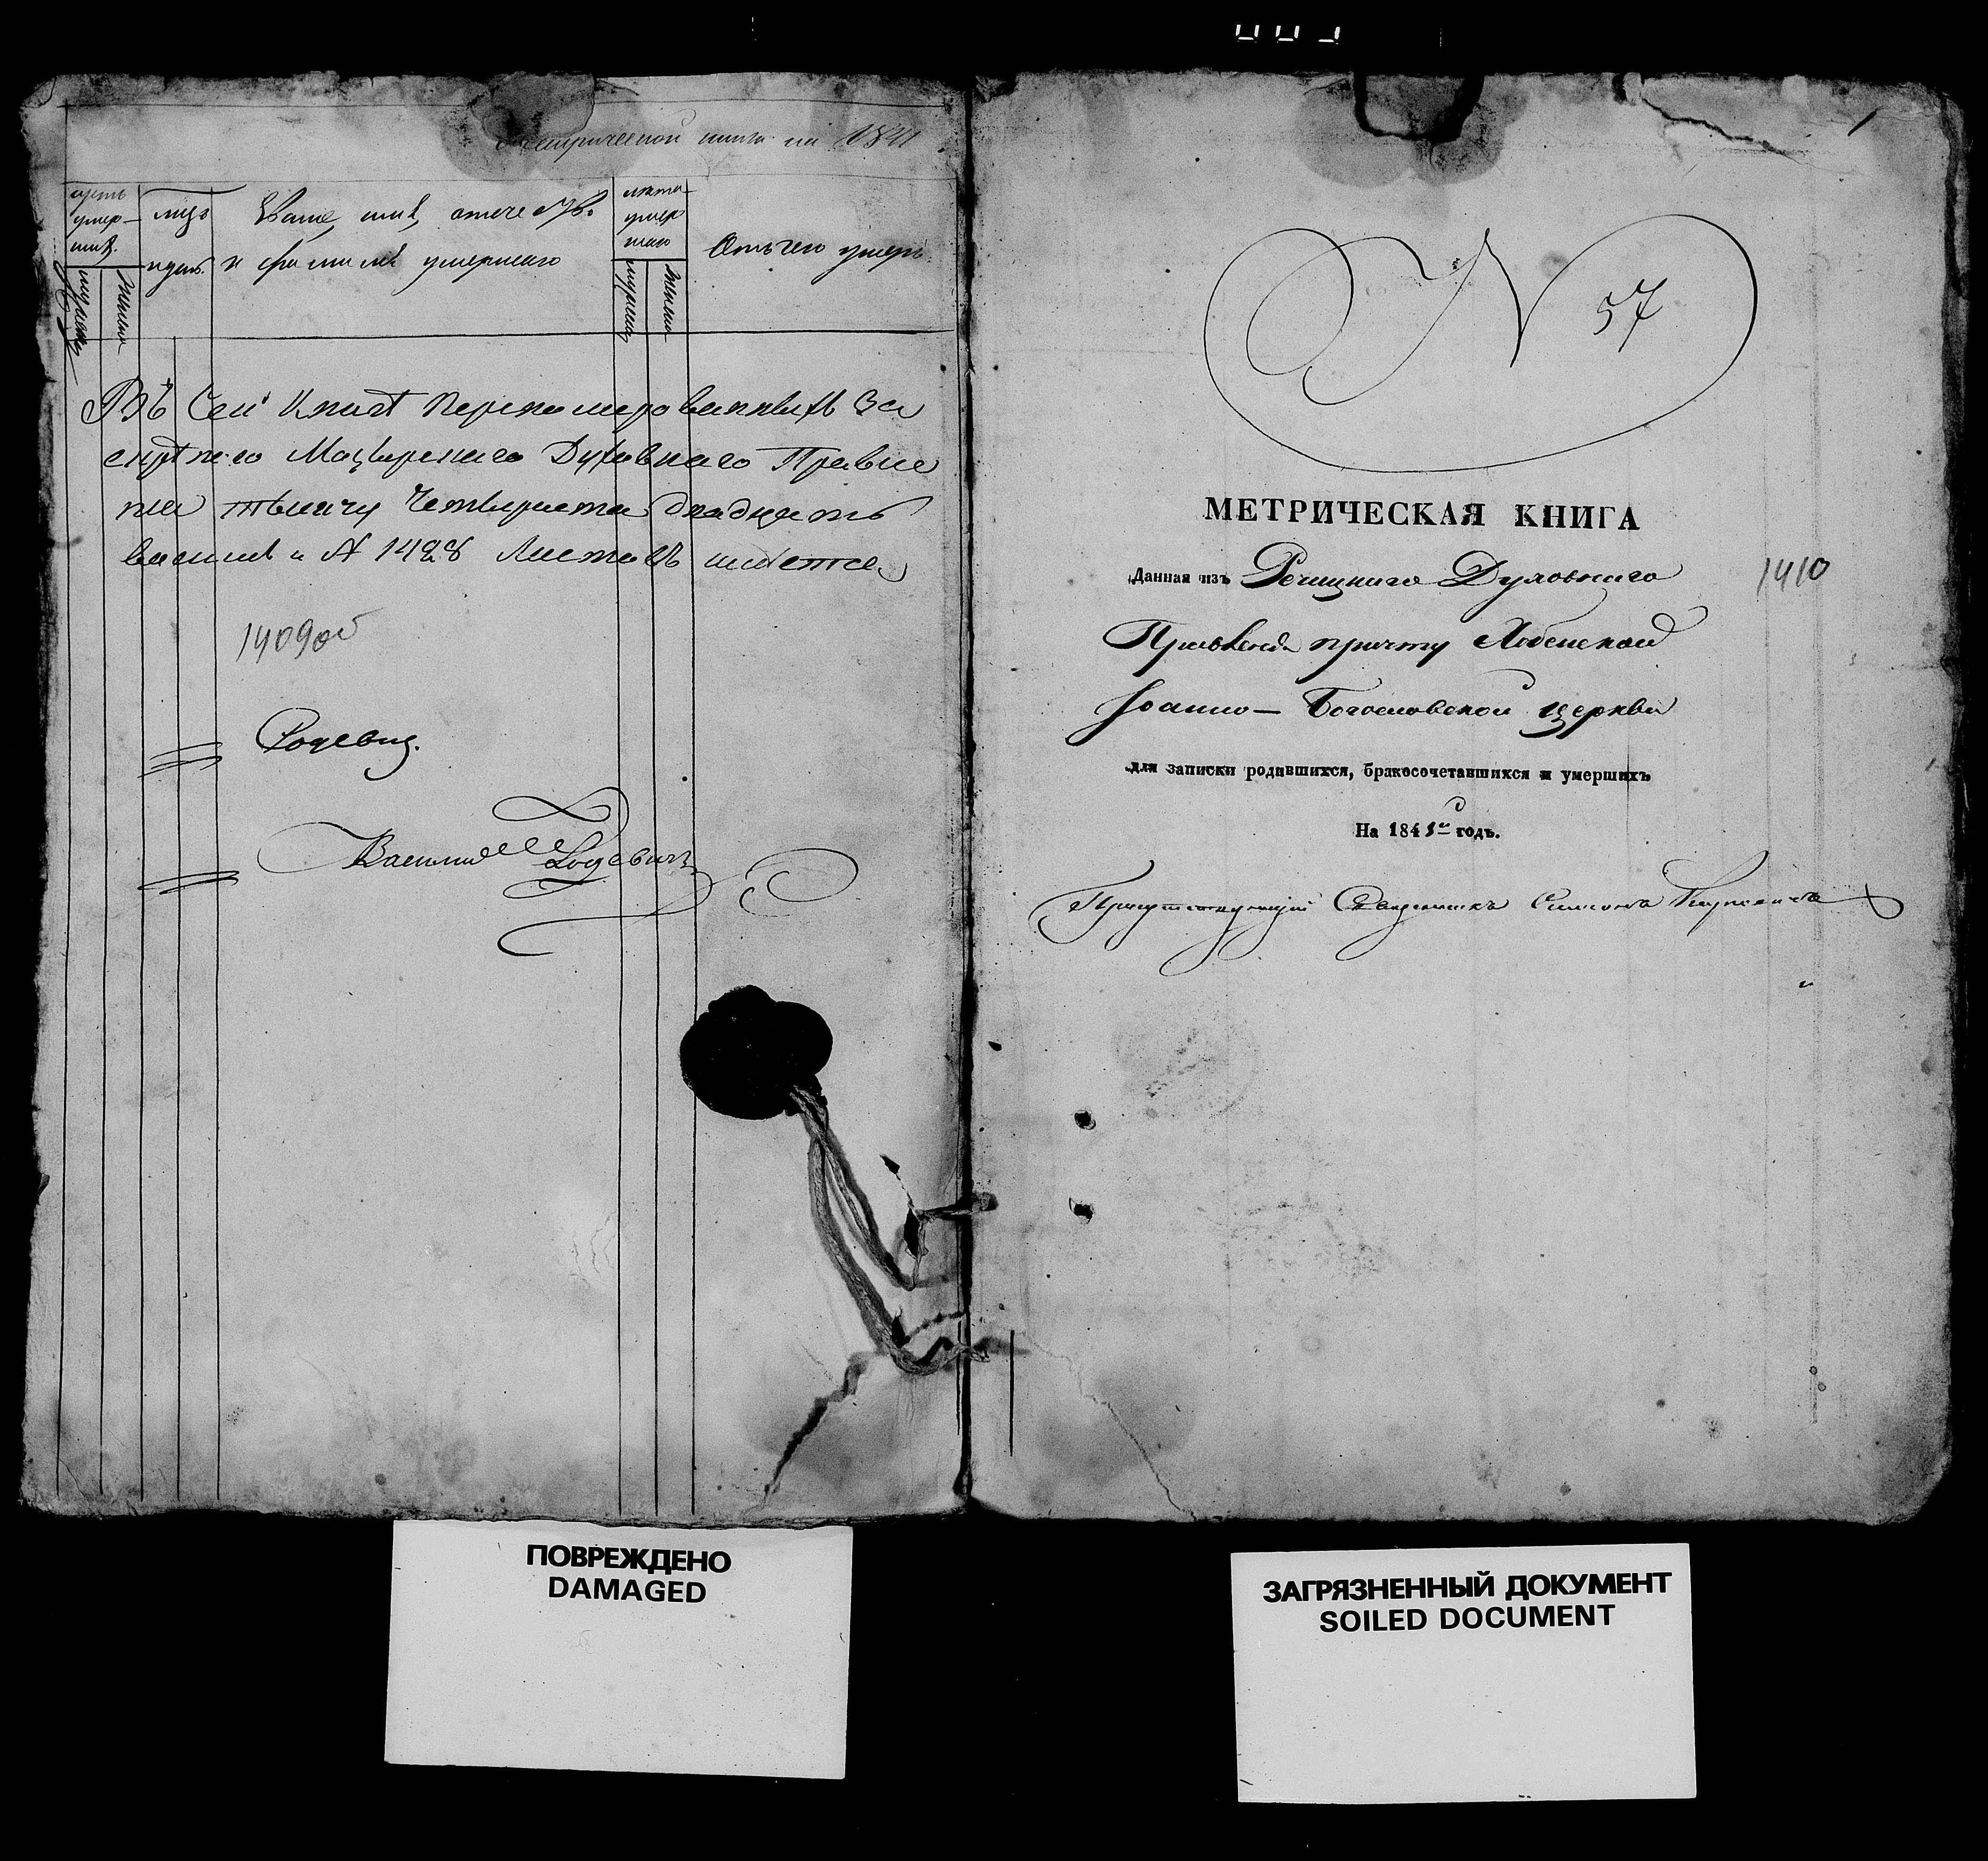 Метрической книги на 1841
часть умер- шихъ
мужеска
женска
лицъ
Званіе, имя, отечество
и фамилія умершаго
лета умер шаго
мужеска
женска
Отъ чего умеръ
Въ Сей Книгѣ перенумерованныхъ За
Мозырскаго Духовнаго Правле
нія тысячу Четыреста двадцать
восемь и № 1428 Листовъ имѣется
1409об
Родевич.
Василий Родевичъ
1
N 57
МЕТРИЧЕСКАЯ КНИГА
Данная изъ Речицкаго Духовнаго
1410
Правленія причту
Іоанно- Богословской церкви
для записки родившихся, бракосочетавшихся и умершихъ
На 1841й годъ.
Присутствующій Священникъ Симонъ
ПОВРЕЖДЕНО
DAMAGED
ЗАГРЯЗНЕННЫЙ ДОКУМЕНТ
SOILED DOCUMENT